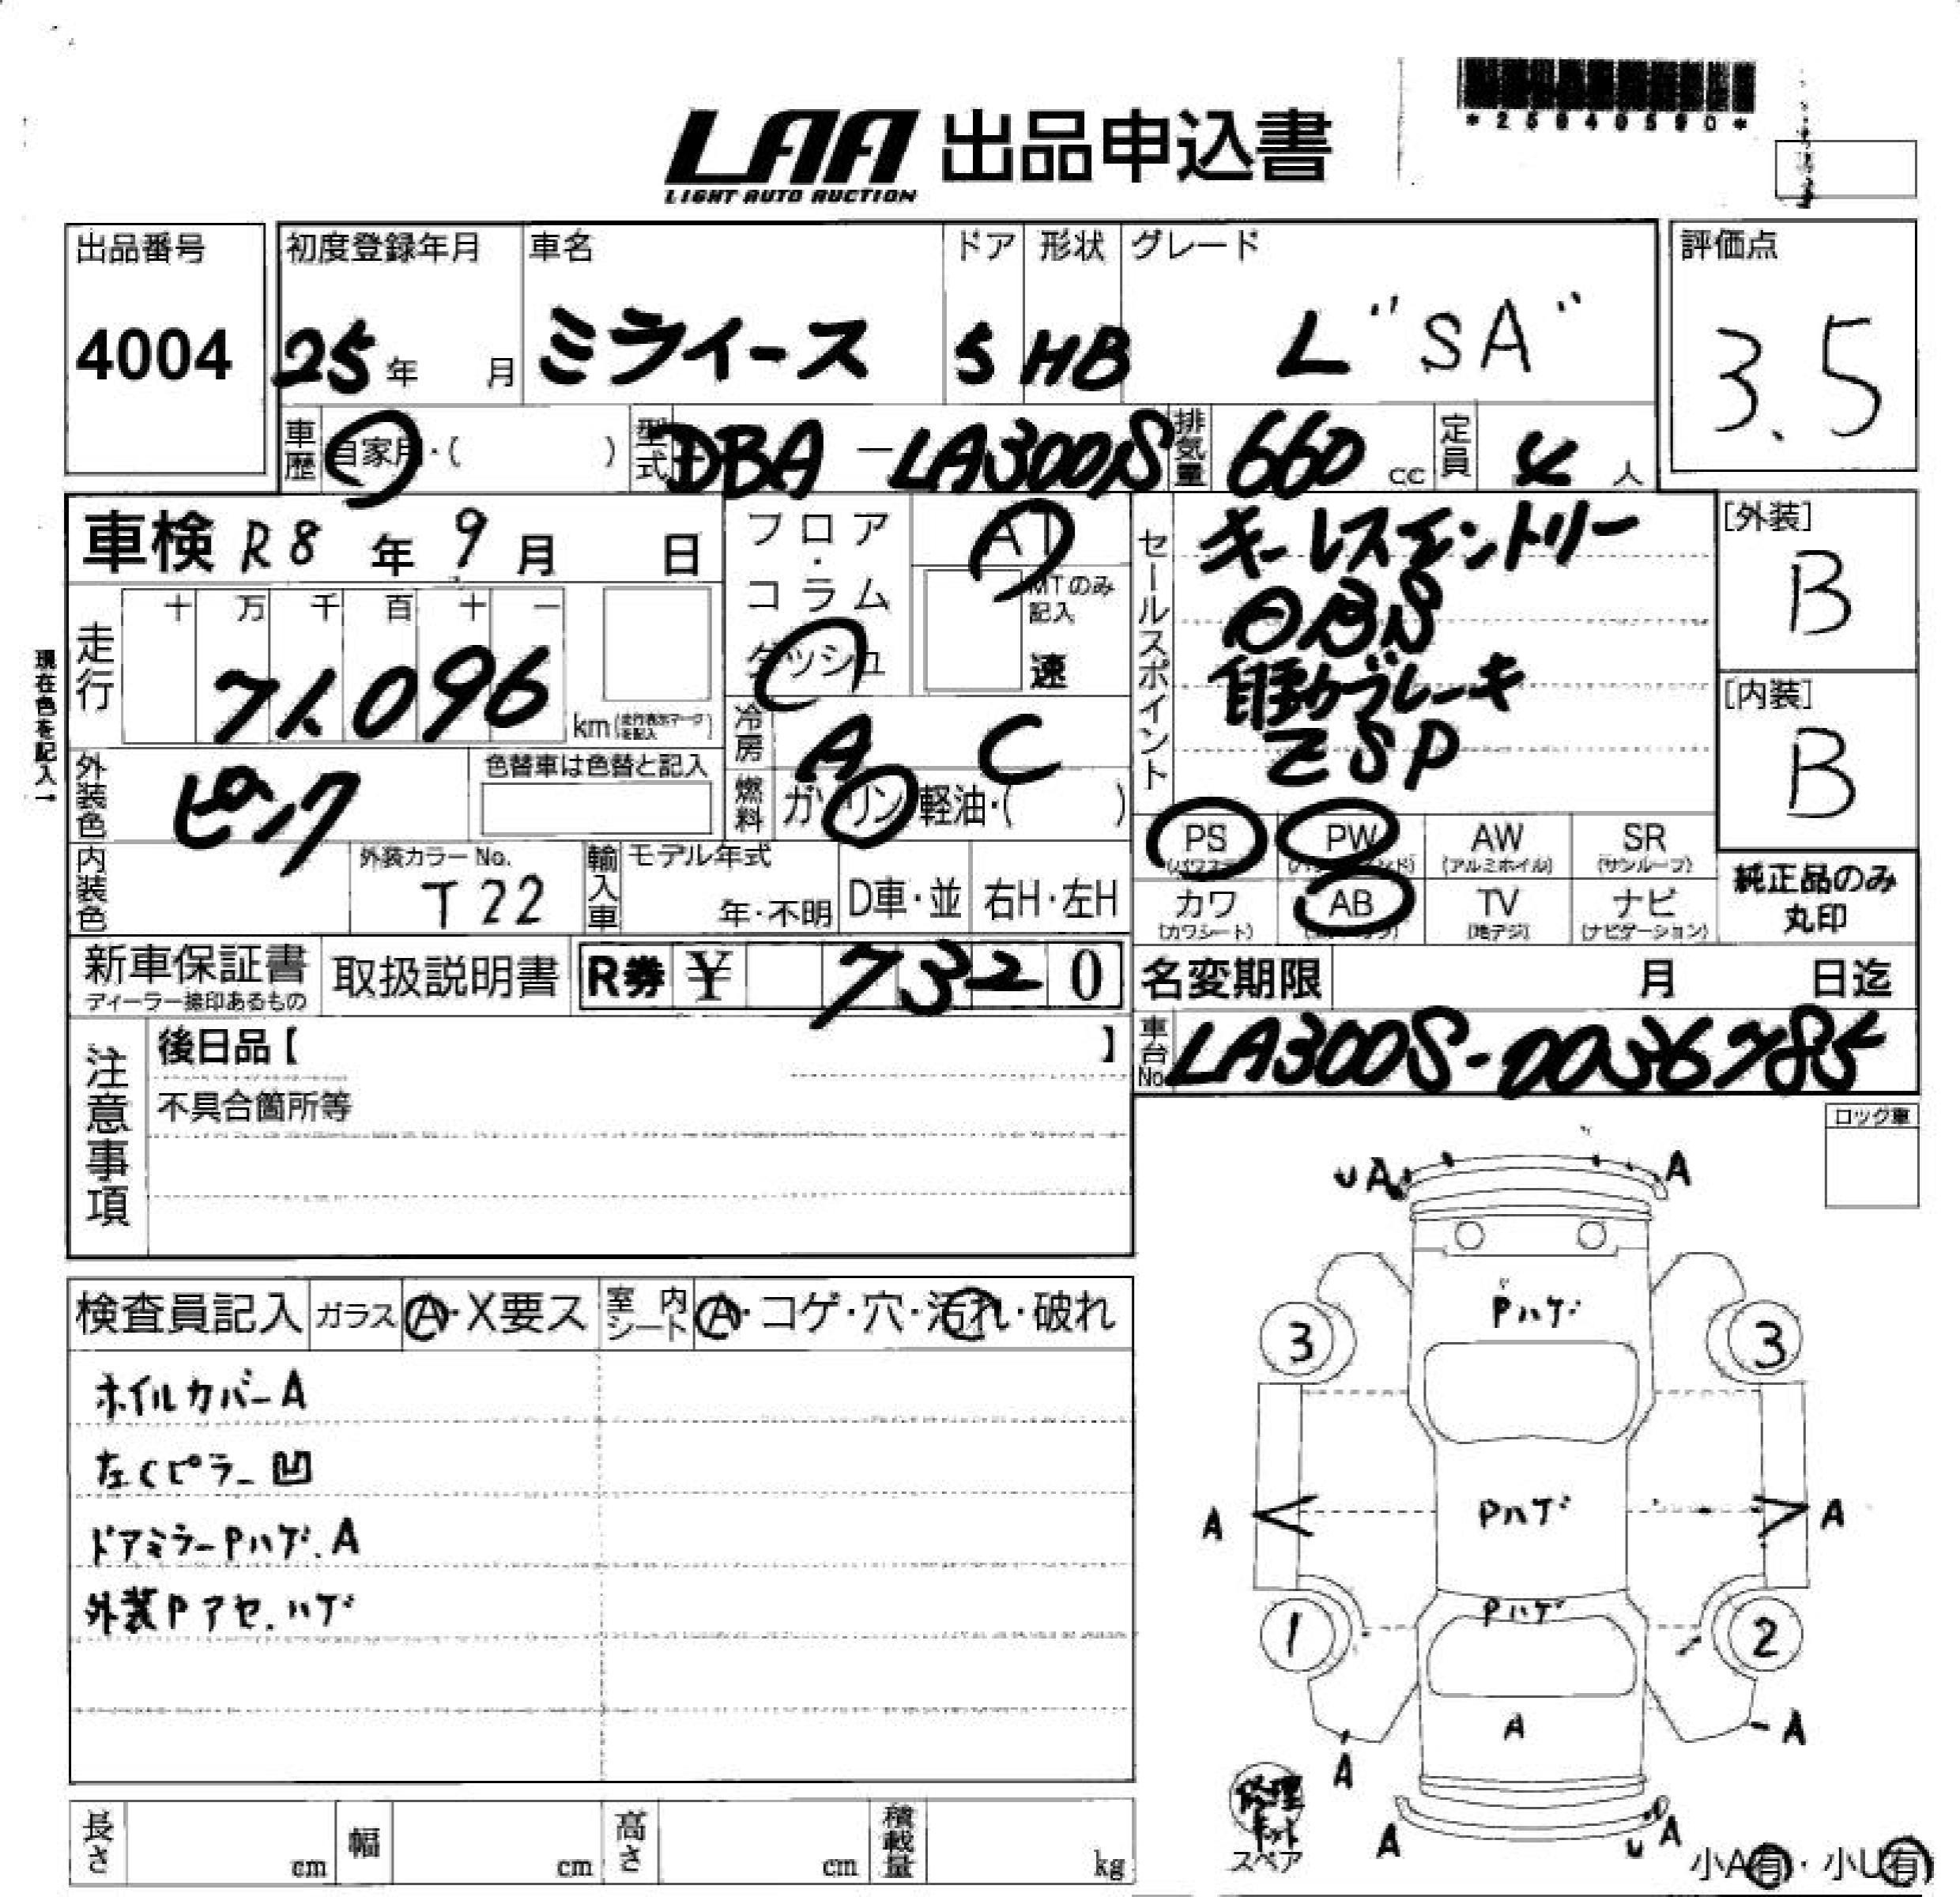 *25040590*
LAA 出品申込書
LIGHT AUTO AUCTION
出品番号 4004
初度登録年月 25年 月
車名 ミライース
ドア 5
形状 HB
グレード L "SA"
評価点 3.5
車歴 自家用・( )
型式 DBA-LA300S
排気量 660 cc
定員 4 人
車検 R8 年 9 月 日
フロア・コラム
ダッシュ
AT
MTのみ記入
速
セールスポイント
キーレスエントリー
ABS
自動ブレーキ
ESP
[外装] B
[内装] B
現在色を記入↓
走行 十 万 千 百 十 一
71.096 km(走行表示マークを記入)
冷房 AC
外装色 ピンク
色替車は色替と記入
燃料 ガソリン 軽油・( )
PS AW SR
PW (アルミホイル) (サンルーフ)
カワ AB TV ナビ
(カワシート) (地デジ) (ナビゲーション)
純正品のみ
丸印
内装色
外装カラーNo. T22
輸入車 モデル年式 年・不明
D車・並 右H・左H
新車保証書
ディーラー捺印あるもの
取扱説明書
R券 ¥ 7320
名変期限 月 日迄
車台No. LA300S-0036785
注意事項
後日品【 】
不具合箇所等
ロック車
検査員記入 ガラス A・X要ス 室内シート A・コゲ・穴・汚れ・破れ
ホイルカバーA
左Cピラー凹
ドアミラーPハゲ.A
外装Pアセ.ハゲ
UA A
Pハゲ
3 3
A Pハゲ A
Pハゲ
1 2
A
A A
修理
キット
スペア
A UA
小A有・小U有
長さ cm 幅 cm 高さ cm 積載量 kg